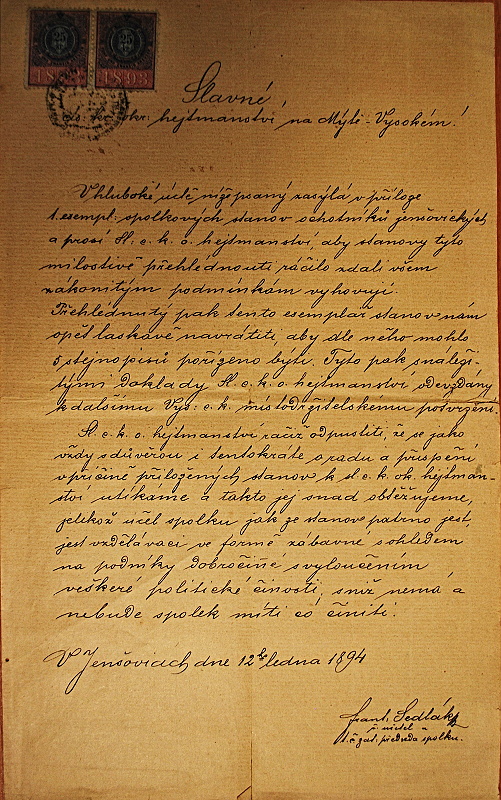 25 25
1893 1893
Slavné
cís. král. okr. hejtmanství na Mýtě-Vysokém!
V hluboké úctě nížepsaný zasýlá v příloze
1. exempl: spolkových stanov ochotníků jenšovických
a prosí Sl. c. k. o. hejtmanství, aby stanovy tyto
milostivě přehlédnouti ráčilo zdali všem
zákonitým podmínkám vyhovují.
Přehlédnutý pak tento exemplář stanov nám
opět laskavě navrátiti, aby dle něho mohlo
5 stejnopisů pořízeno býti. Tyto pak s náleži-
tými doklady Sl. c. k. o. hejtmanství odevzdány
k dalšímu Vys: c. k. místodržitelskému potvrzení.
Sl. c. k. o. hejtmanství račiž odpustiti, že se jako
vždy s důvěrou i tentokráte o radu a přispění
v příčině přiložených stanov k sl. c. k. ok. hejtman-
ství utíkáme a takto jej snad obtěžujeme,
jelikož účel spolku jak ze stanov patrno jest,
jest vzdělávací ve formě zábavné s ohledem
na podniky dobročiné s vyloučením
veškeré politické činosti, s níž nemá a
nebude spolek míti co činiti.
V Jenšovicích dne 12ho ledna 1894
Frant. Sedlák
ř. učitel a
t. č. zat. předseda spolku.